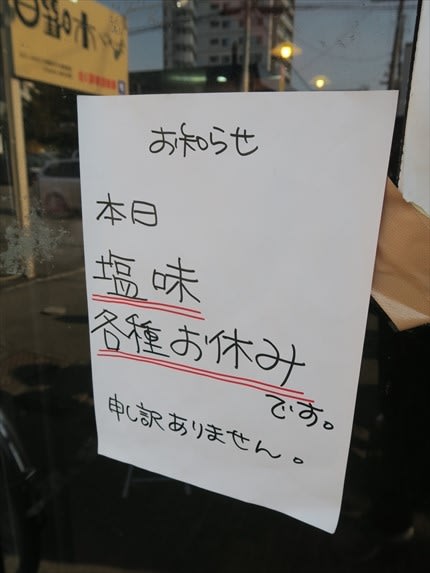 お知らせ
本日
塩味
各種お休み
です。
申し訳ありません。